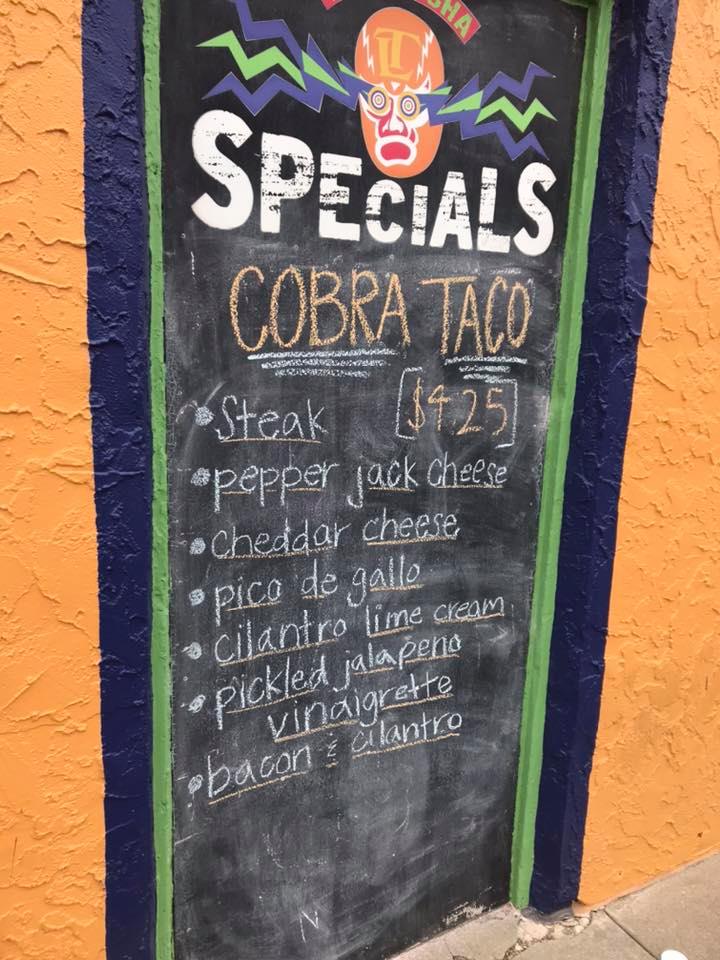 LT
SPECIALS
COBRA TACO
[$4.25]
• Steak
• pepper jack cheese
• cheddar cheese
• pico de gallo
• cilantro lime cream
• pickled jalapeno
vinaigrette
• bacon & cilantro
N